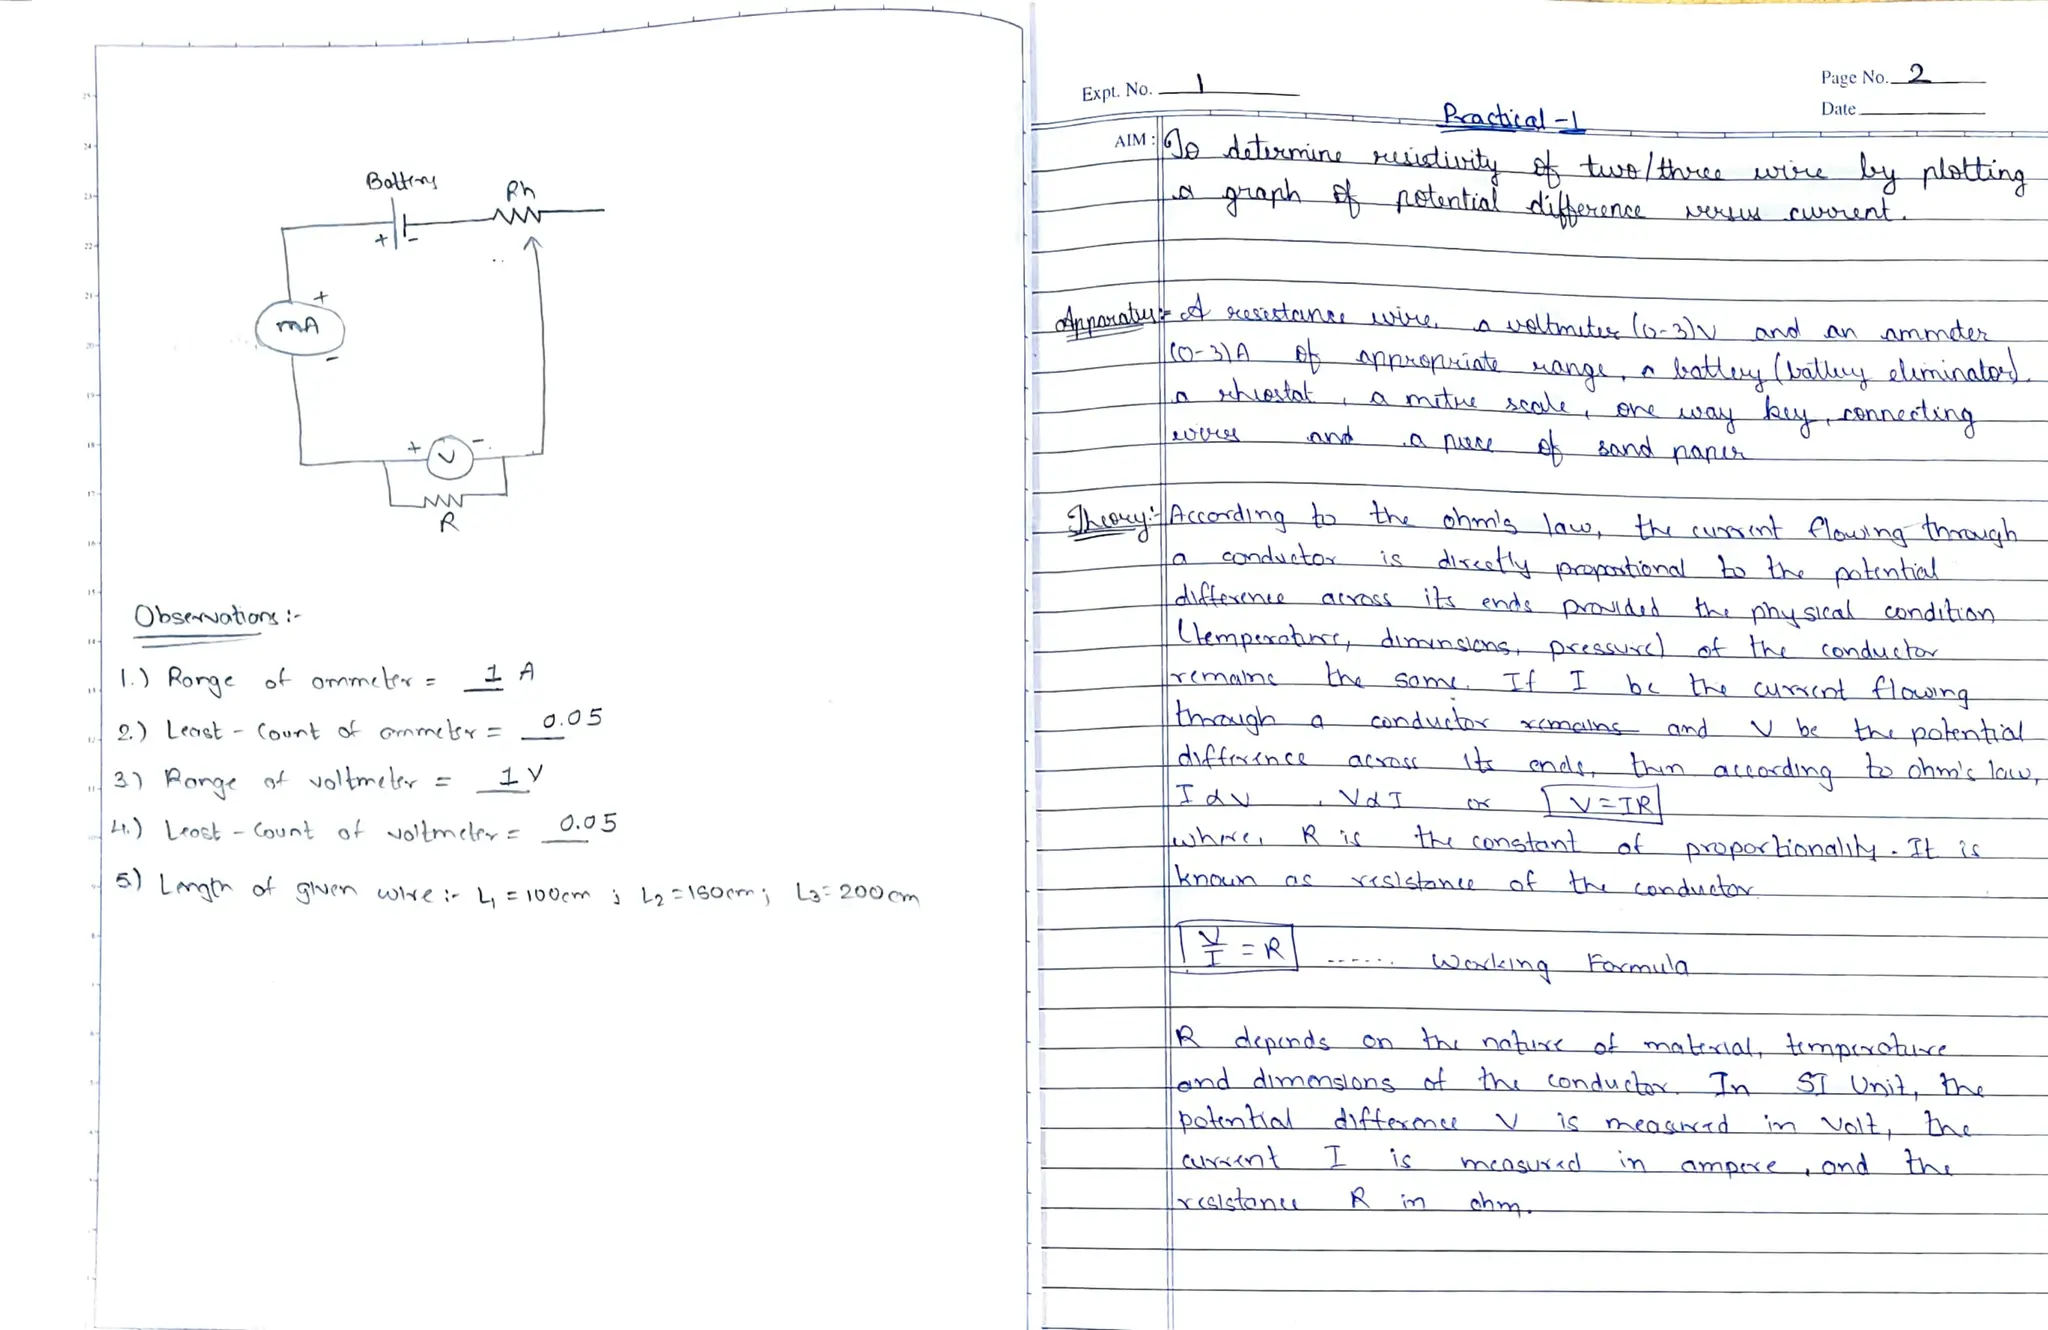 Battery
Rh
+ -
+
mA
-
+ -
V
R
Observations :-
1.) Range of ammeter = 1 A
2.) Least - Count of ammeter = 0.05
3) Range of voltmeter = 1 V
4.) Least - Count of voltmeter = 0.05
5) Length of given wire :- L1 = 100cm ; L2 = 150cm ; L3 = 200cm
Expt. No. 1
Page No. 2
Date
Practical - 1
AIM : To determine resistivity of two/three wire by plotting
a graph of potential difference versus current.
Apparatus :- A resistance wire, a voltmeter (0-3)V and an ammeter
(0-3)A of appropriate range, a battery (battery eliminator).
a rheostat , a metre scale , one way key , connecting
wires and a piece of sand paper
Theory :- According to the ohm's law, the current flowing through
a conductor is directly proportional to the potential
difference across its ends provided the physical condition
(temperature, dimensions, pressure) of the conductor
remains the same. If I be the current flowing
through a conductor remains and V be the potential
difference across its ends, then according to ohm's law,
I α V , V α I or V = IR
where, R is the constant of proportionality . It is
known as resistance of the conductor.
V/I = R ...... Working Formula
R depends on the nature of material, temperature
and dimensions of the conductor. In SI Unit, the
potential difference V is measured in Volt, the
current I is measured in ampere , and the
resistance R in ohm.